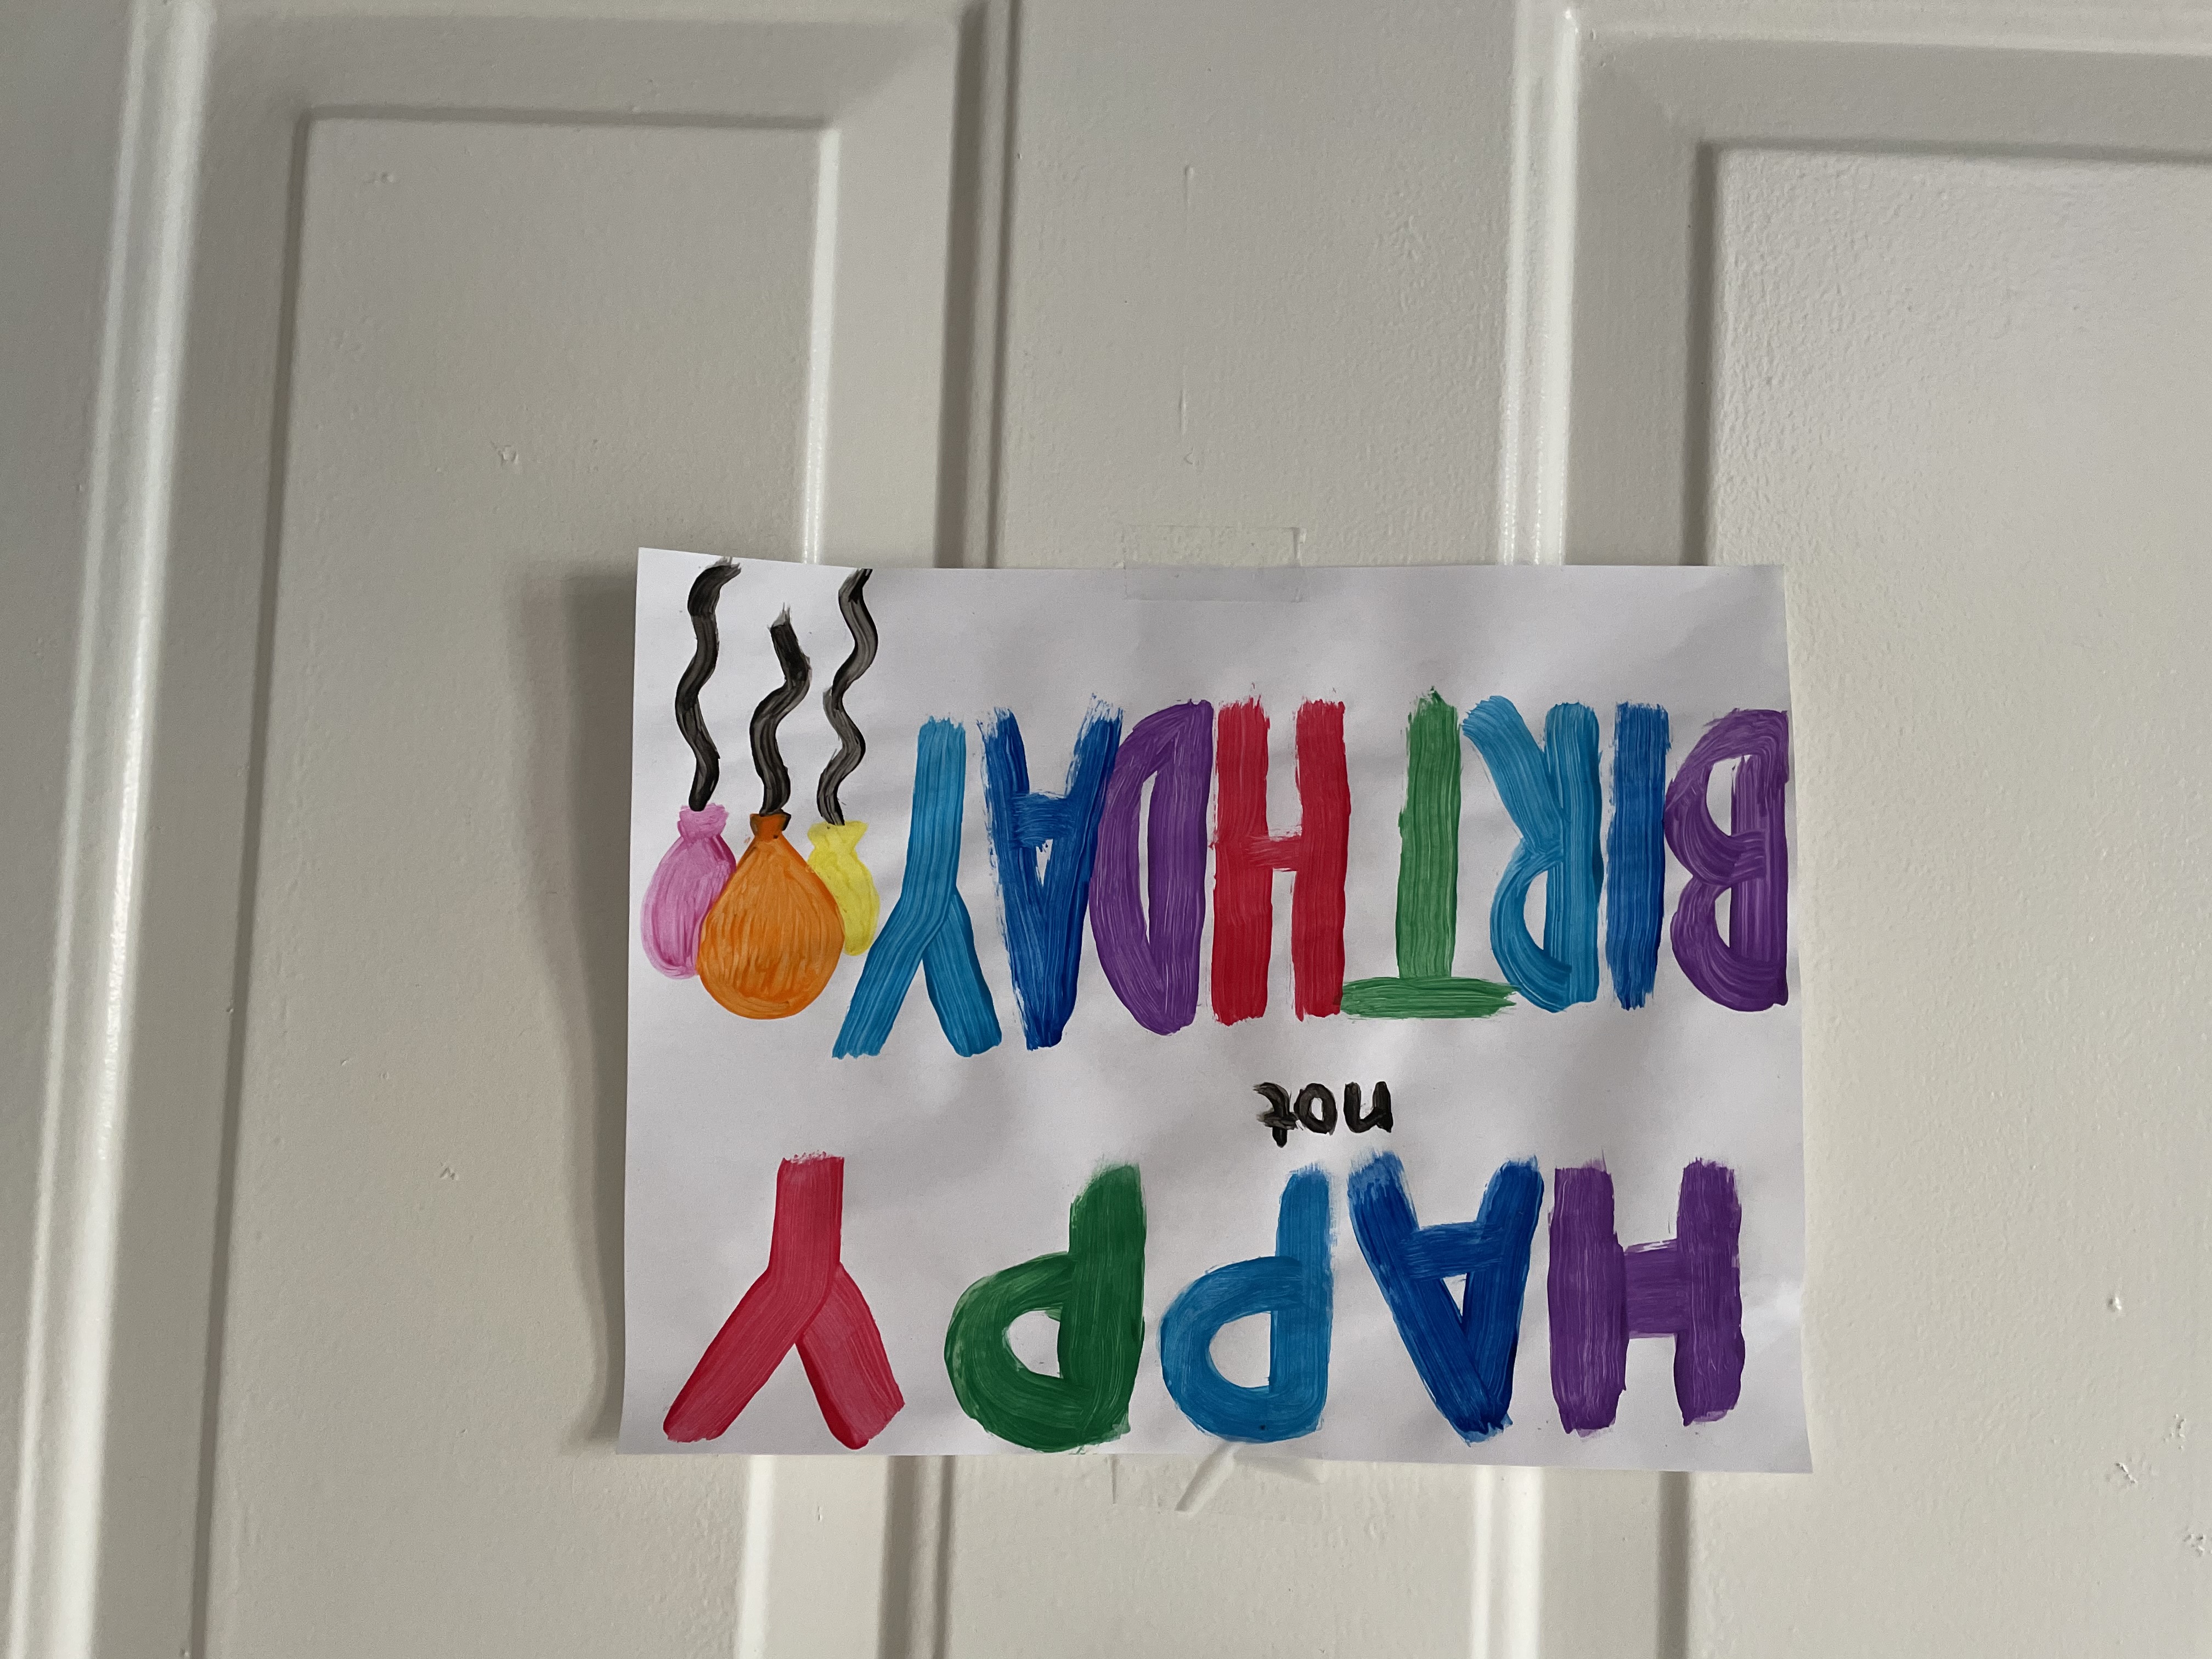 HAPPY
not
BIRTHDAY